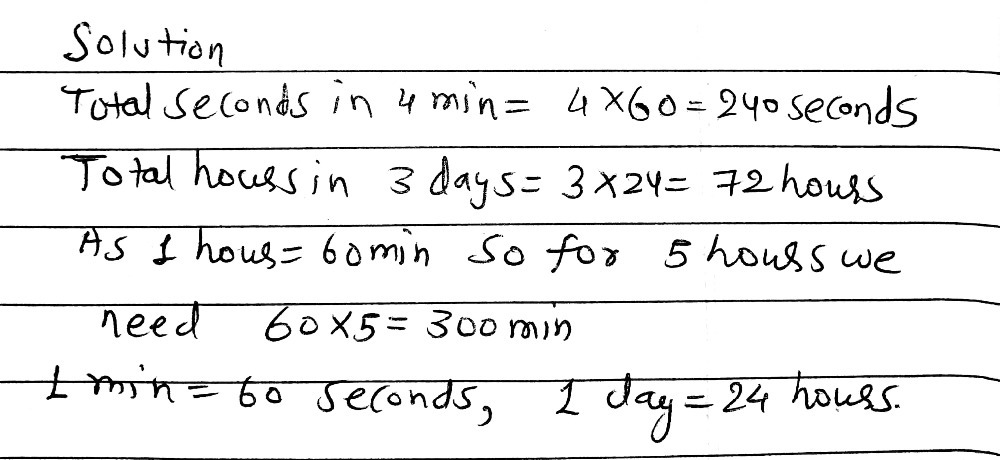 Solution
Total seconds in 4 min = 4 × 60 = 240 seconds
Total hours in 3 days = 3 × 24 = 72 hours
As 1 hour = 60 min So for 5 hours we
need 60 × 5 = 300 min
1 min = 60 seconds, 1 day = 24 hours.